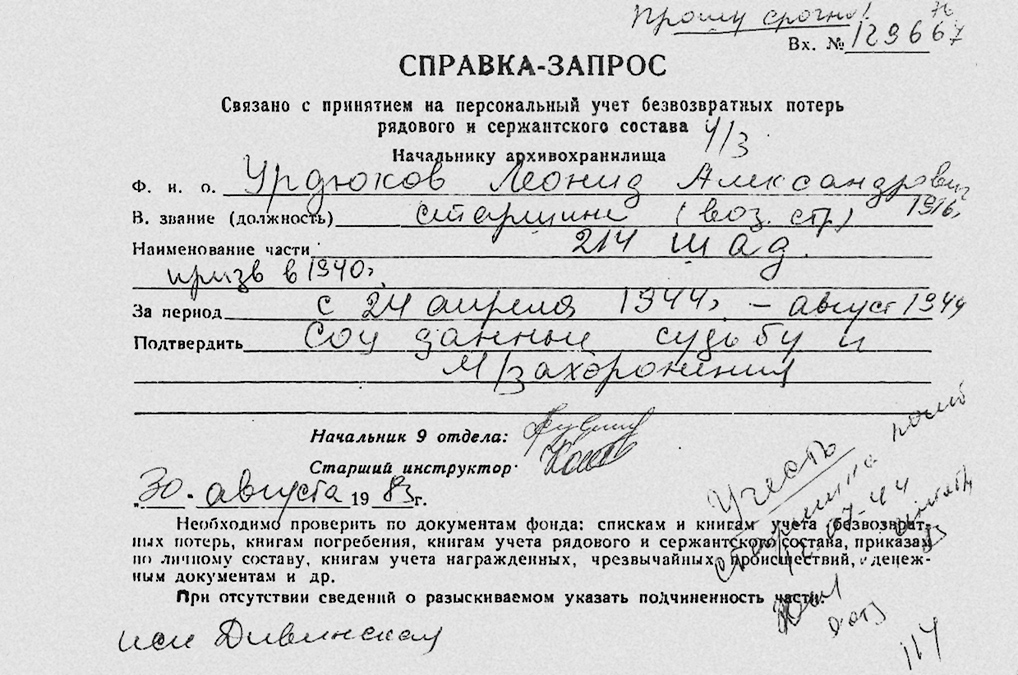 Прошу срочно!
Вх. № 129667
76
СПРАВКА-ЗАПРОС
Связано с принятием на персональный учет безвозвратных потерь
рядового и сержантского состава ч/з
Начальнику архивохранилища
Ф. и о. Урдюков Леонид Александрович
1916г
В. звание (должность) старшине (воз. стр.)
Наименование части 214 шад.
призв в 1940г
За период с 24 апреля 1944г. – август 1944
Подтвердить Соц данные судьбу и
м/захоронения
Начальник 9 отдела:
Старший инструктор
"30. августа 1983г.
Необходимо проверить по документам фонда: спискам и книгам учета безвозврат-
ных потерь, книгам погребения, книгам учета рядового и сержантского состава, приказам
по личному составу, книгам учета награжденных, чрезвычайных происшествий, денеж-
ным документам и др.
При отсутствии сведений о разыскиваемом указать подчиненность части.
исп Дивинская
Учесть
старшина
07-44
114